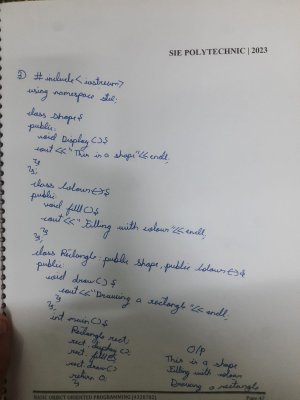 SIE POLYTECHNIC | 2023
2) #include<iostream>
using namespace std;
class shape{
public:
void Display(){
cout<<"This is a shape"<<endl;
}
};
class Colour{
public:
void fill(){
cout<<"Filling with colour"<<endl;
}
};
class Rectangle: public shape, public Colour{
public:
void draw(){
cout<<"Drawing a rectangle"<<endl;
}
};
int main(){
Rectangle rect;
rect.display();
rect.fill();
rect.draw();
return 0;
}
O/P
This is a shape
Filling with colour
Drawing a rectangle
BASIC OBJECT ORIENTED PROGRAMMING (4320702)